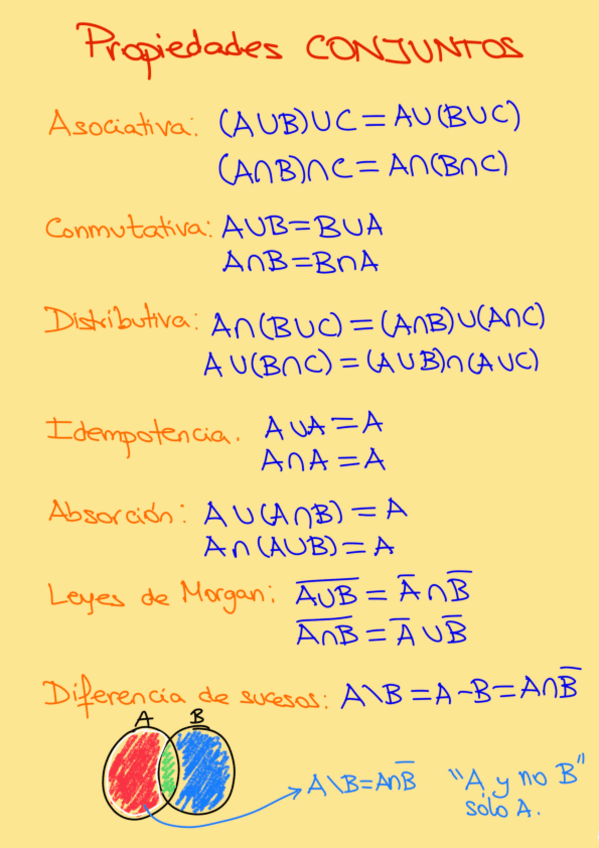 Propiedades CONJUNTOS
Asociativa: (A∪B)∪C = A∪(B∪C)
(A∩B)∩C = A∩(B∩C)
Conmutativa: A∪B = B∪A
A∩B = B∩A
Distributiva: A∩(B∪C) = (A∩B)∪(A∩C)
A∪(B∩C) = (A∪B)∩(A∪C)
Idempotencia. A∪A = A
A∩A = A
Absorción: A∪(A∩B) = A
A∩(A∪B) = A
Leyes de Morgan: A̅∪̅B̅ = A̅∩B̅
A̅∩̅B̅ = A̅∪B̅
Diferencia de sucesos: A\B = A-B = A∩B̅
A B
A\B = A∩B̅ "A y no B"
sólo A.